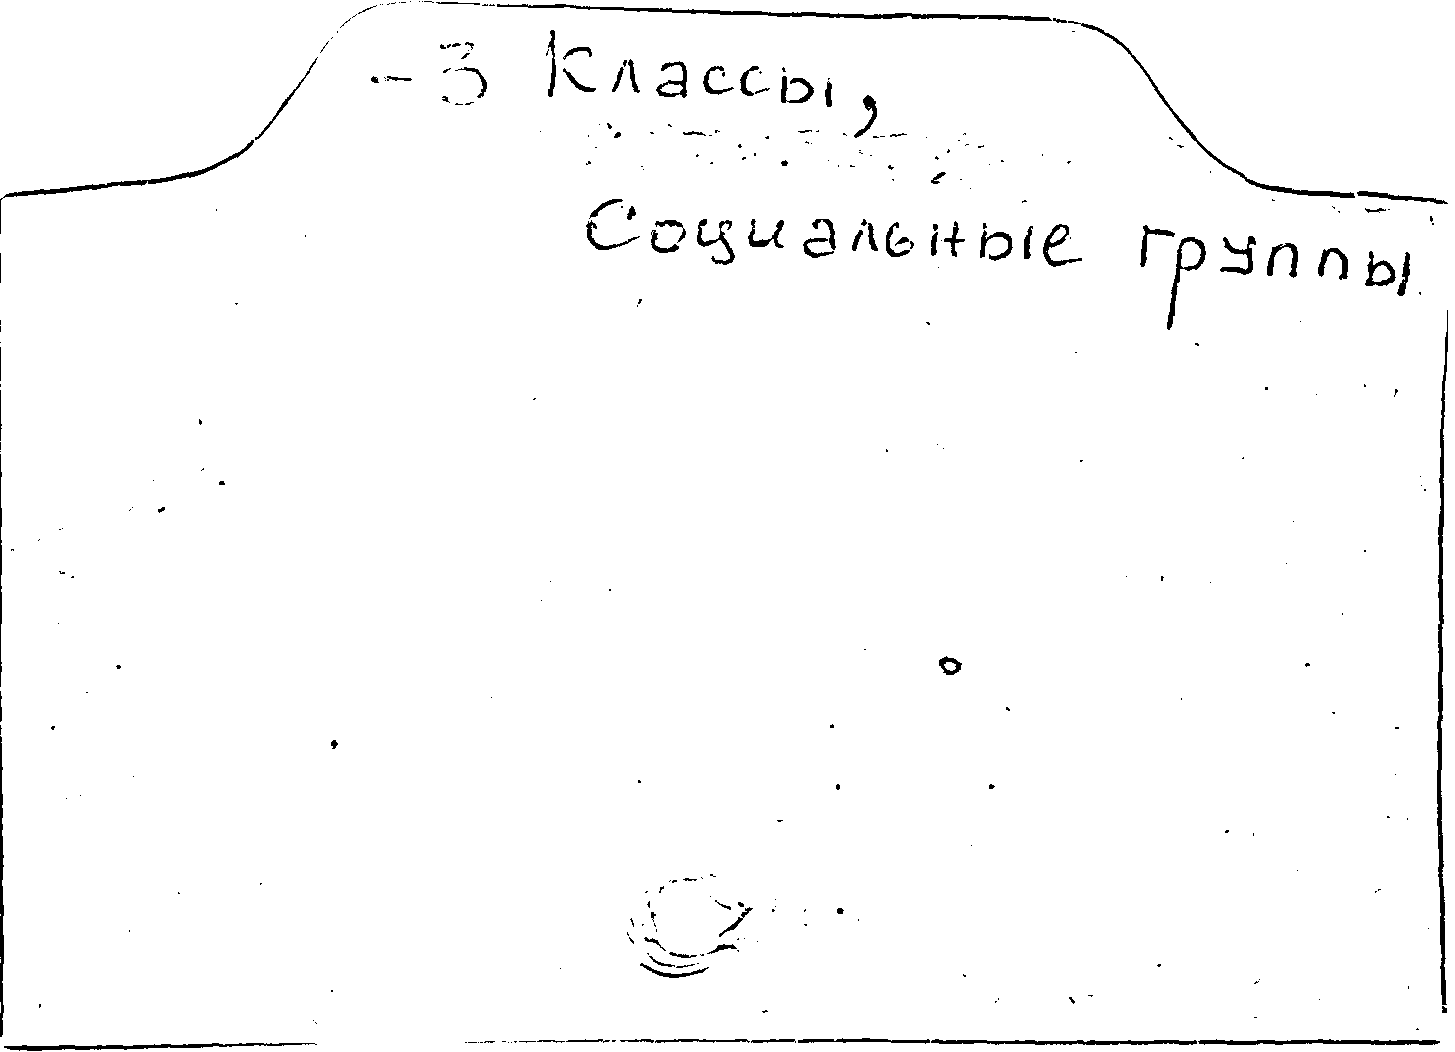 -3 Классы,
Социальные группы